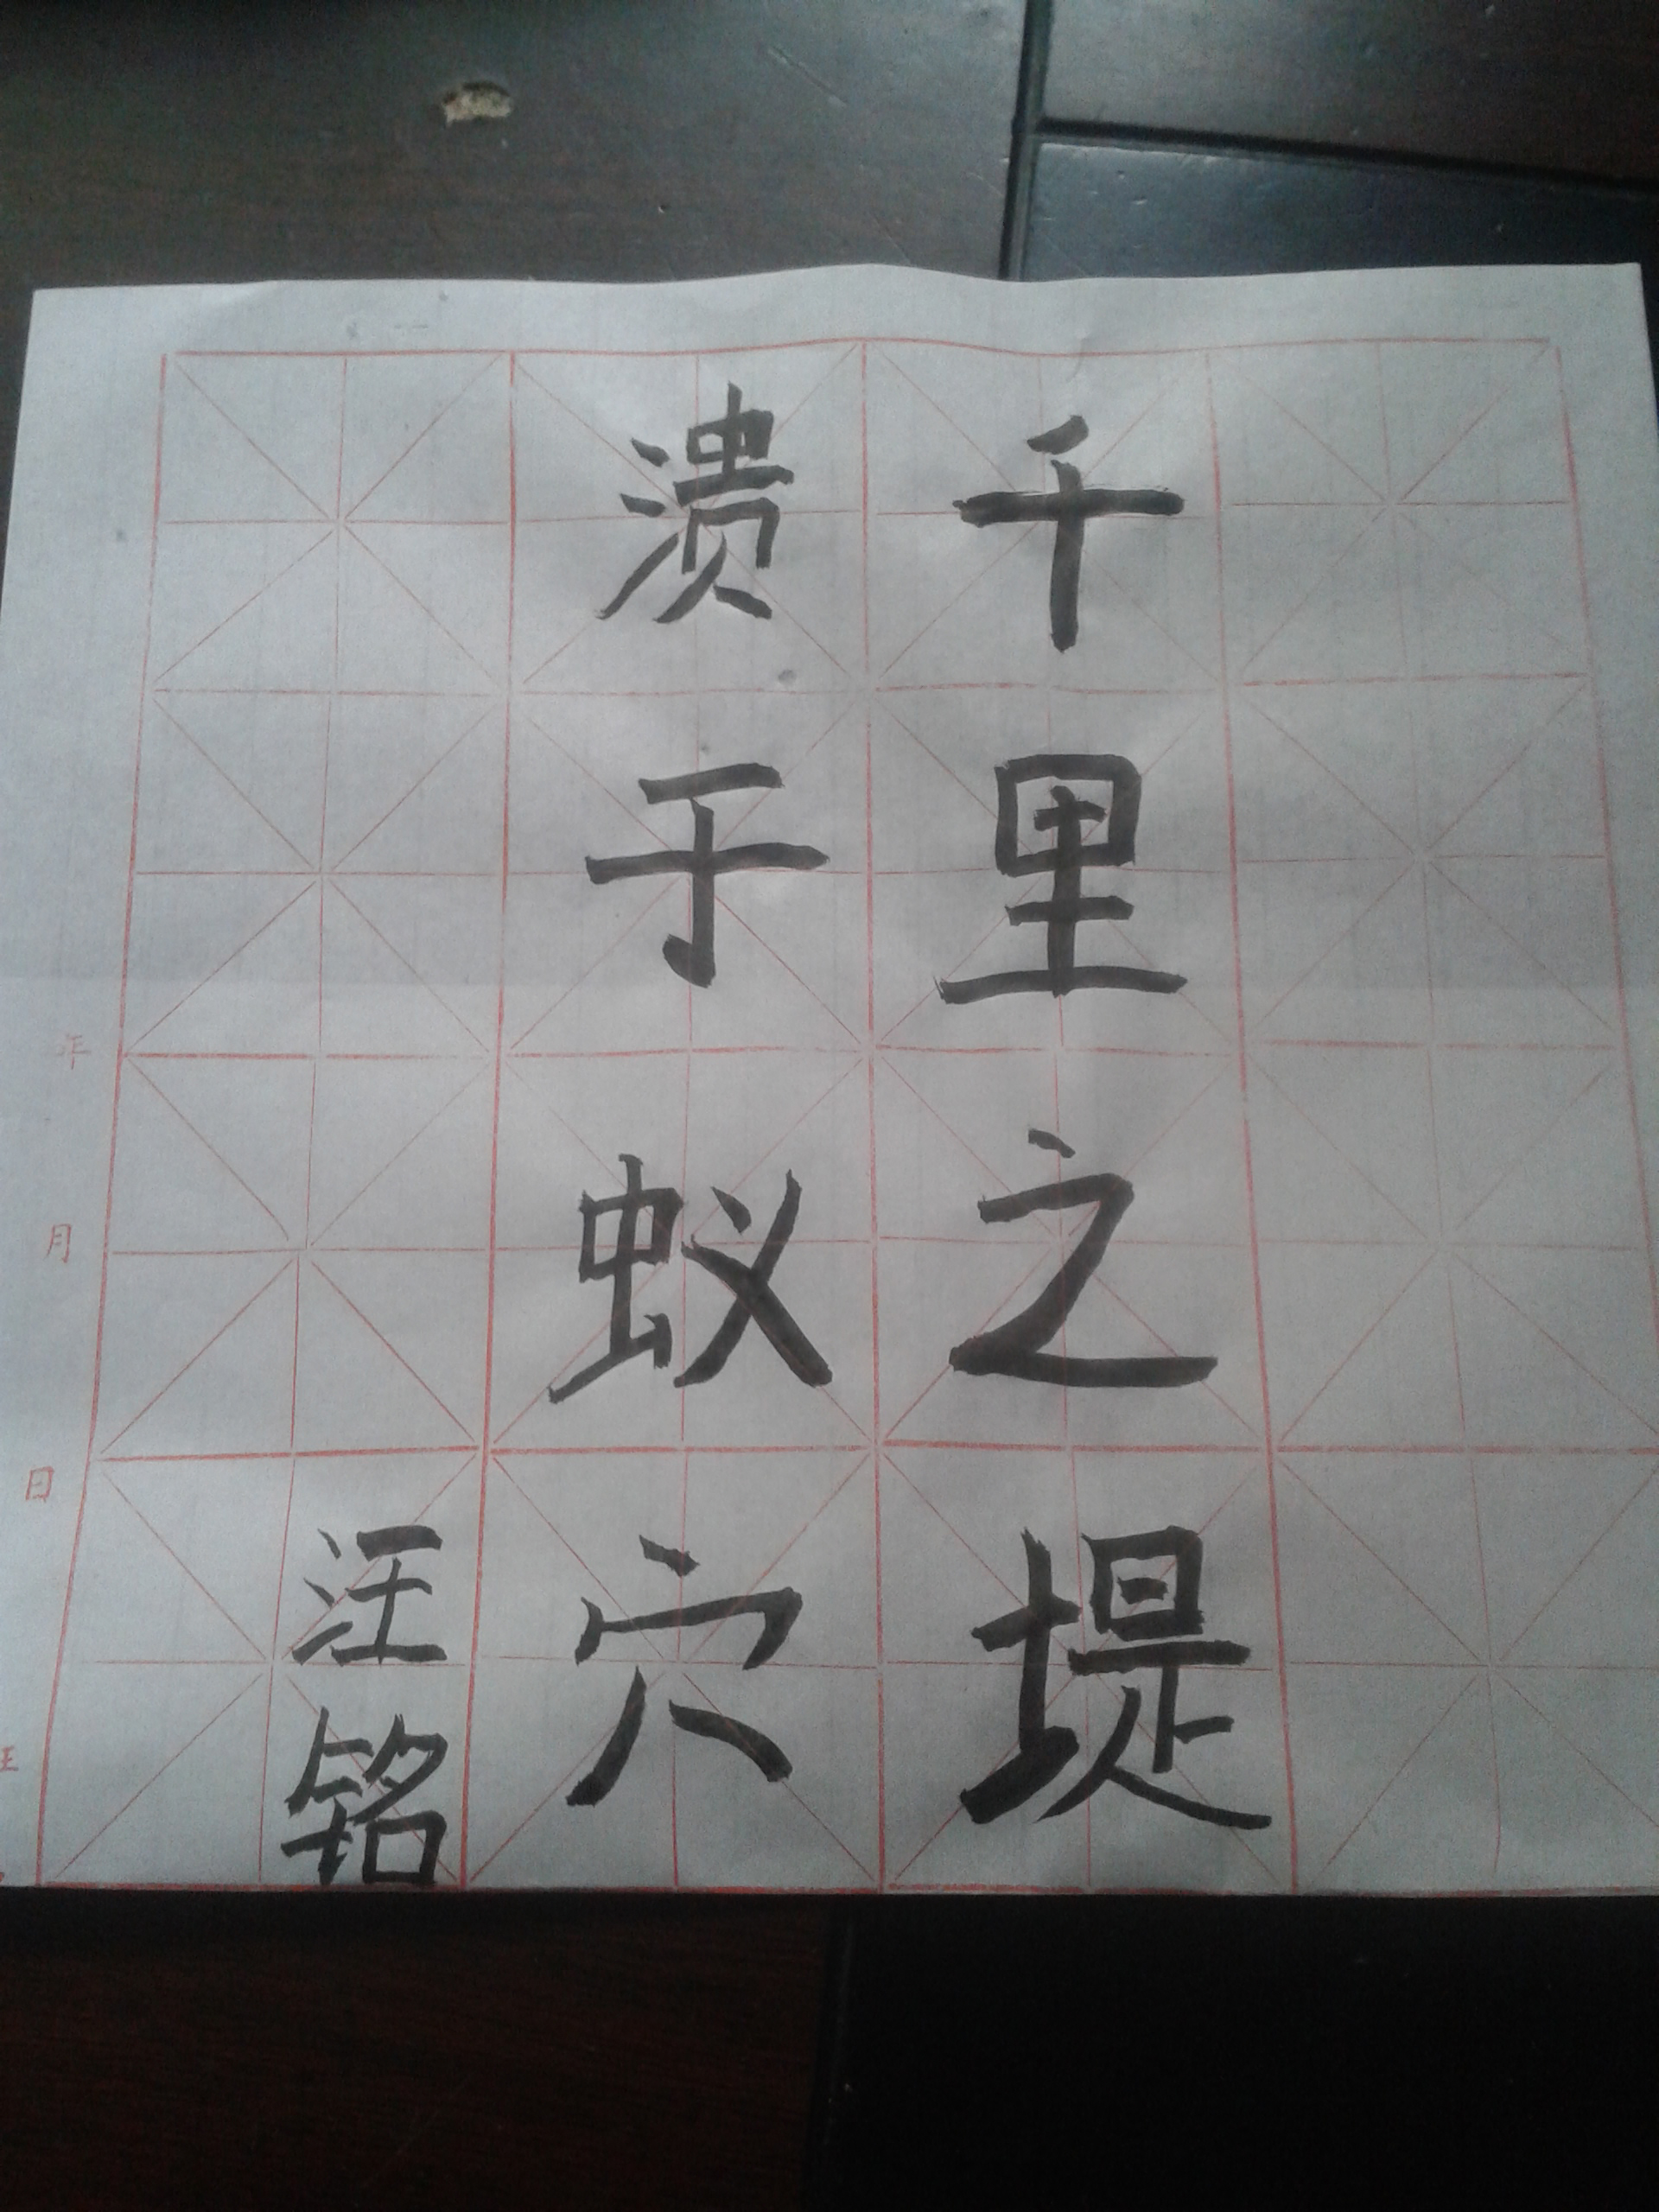 千里之堤
溃于蚁穴
汪铭
年
月
日